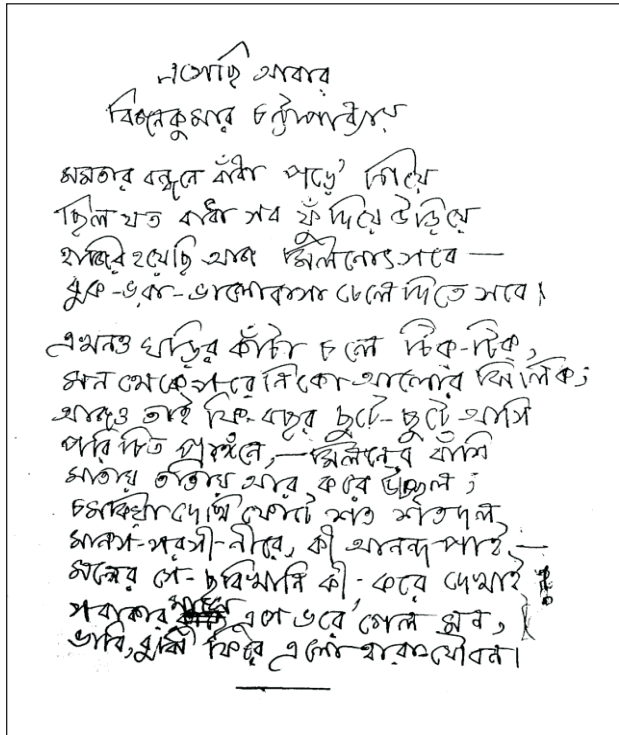 এসেছি আবার
বিজনকুমার চট্টোপাধ্যায়
মমতার বন্ধনে বাঁধা পড়ে' গিয়ে
ছিল যত বাধা সব ফুঁ দিয়ে উড়িয়ে
হাজির হয়েছি আজ মিলনোৎসবে —
বুক-ভরা-ভালোবাসা ঢেলে দিতে সবে।
এখনও ঘড়ির কাঁটা চলে টিক-টিক,
মন থেকে সরে নিকো আলোর ঝিলিক;
আজও তাই ফি-বছর ছুটে-ছুটে আসি
পরিচিত প্রাঙ্গনে, — মিলনের বাঁশি
মাতায় তাতায় আর করে উচ্ছল;
চমকিয়া দেখি ফোটে শত শতদল
মানস-সরসী-নীরে, কী আনন্দ পাই, —
মনের সে-ছবিখানি কী-করে দেখাই
সবাকার মাঝে এসে ভরে' গেল মন,
ভাবি, বুঝি ফিরে এলো হারা-যৌবন।